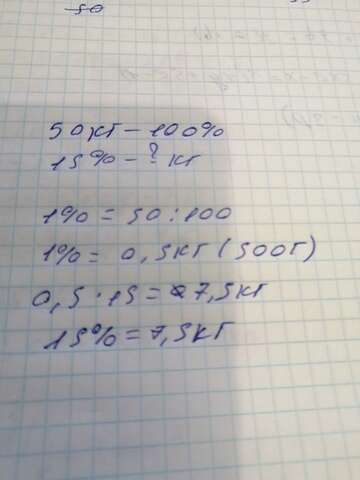 50
50кг - 100%
15% - ? кг
1% = 50 : 100
1% = 0,5кг (500г)
0,5 · 15 = 7,5кг
15% = 7,5кг